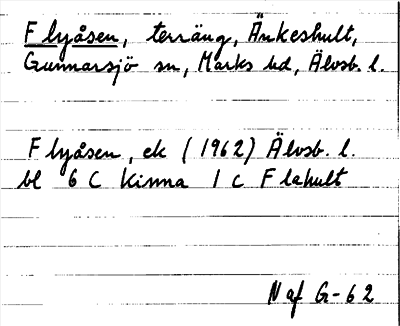 Flyåsen, terräng, Änkeshult,
Gunnarsjö sn, Marks hd, Älvsb. l.
Flyåsen, ek (1962) Älvsb. l.
bl 6 C Kinna 1 c Flahult
Naf G-62